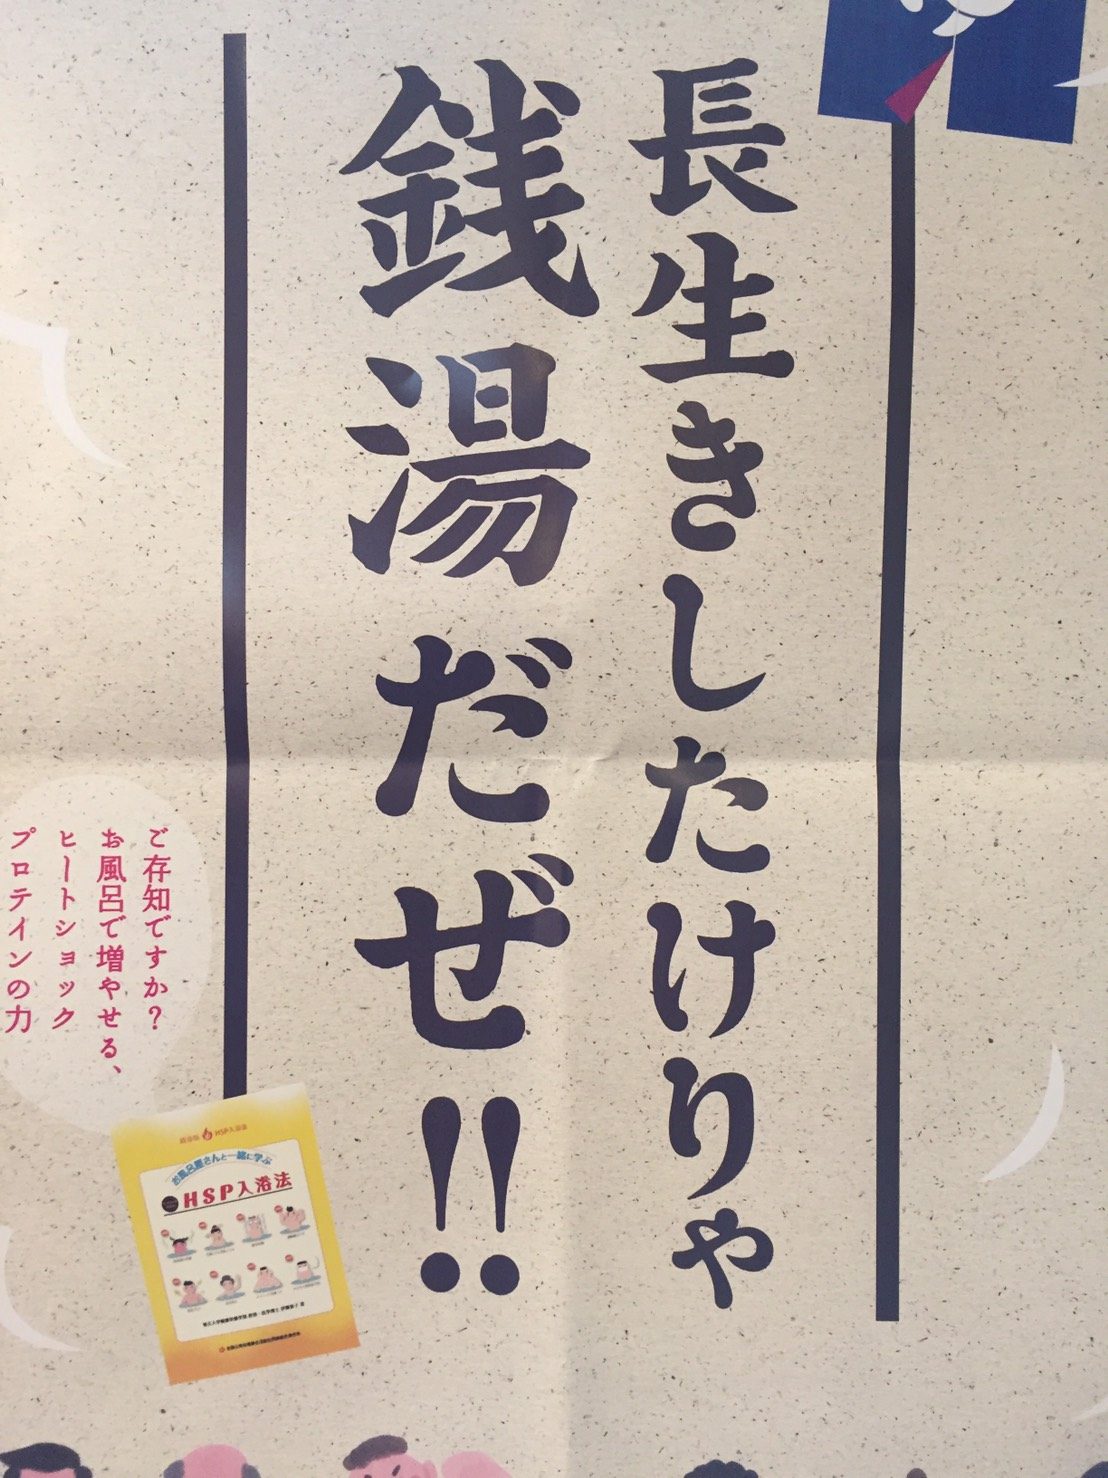 長生きしたけりゃ
銭湯だぜ!!
ご存知ですか?
お風呂で増やせる、
ヒートショック
プロテインの力
HSP入浴法
お風呂屋さんと一緒に学ぶ
HSP入浴法